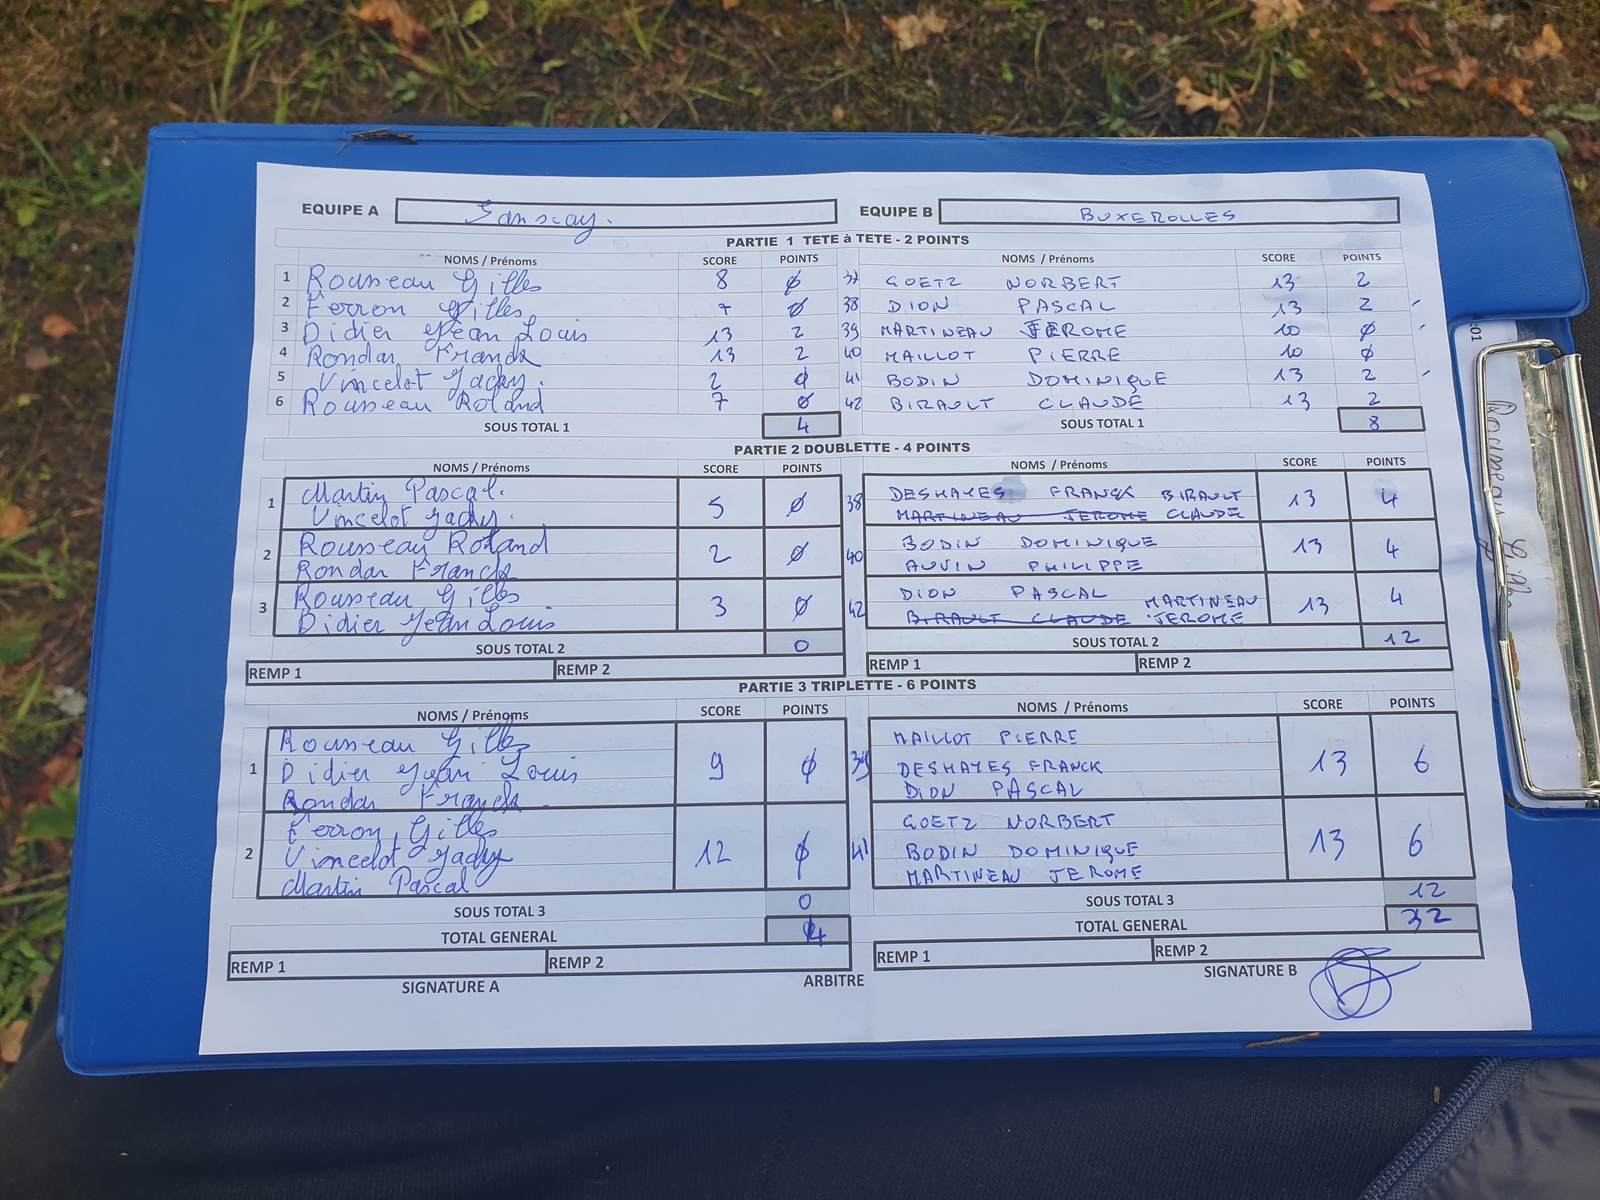 EQUIPE A Sanxay. EQUIPE B BUXEROLLES
PARTIE 1 TETE à TETE - 2 POINTS
NOMS / Prénoms SCORE POINTS NOMS / Prénoms SCORE POINTS
1 Rousseau Gilles 8 0 37 GOETZ NORBERT 13 2
2 Ferron Gilles 7 0 38 DION PASCAL 13 2
3 Didier Jean Louis 13 2 39 MARTINEAU JEROME 10 0
4 Rondar Franck 13 2 40 MAILLOT PIERRE 10 0
5 Vincelot Jacky. 2 0 41 BODIN DOMINIQUE 13 2
6 Rousseau Roland 7 0 42 BIRAULT CLAUDE 13 2
SOUS TOTAL 1 4 SOUS TOTAL 1 8
PARTIE 2 DOUBLETTE - 4 POINTS
NOMS / Prénoms SCORE POINTS NOMS / Prénoms SCORE POINTS
1 Martin Pascal. 5 0 38 DESHAYES FRANCK BIRAULT 13 4
Vincelot Jacky. MARTINEAU JEROME CLAUDE
2 Rousseau Roland 2 0 40 BODIN DOMINIQUE 13 4
Rondar Franck AUVIN PHILIPPE
3 Rousseau Gilles 3 0 42 DION PASCAL MARTINEAU 13 4
Didier Jean Louis BIRAULT CLAUDE JEROME
SOUS TOTAL 2 0 SOUS TOTAL 2 12
REMP 1 REMP 2 REMP 1 REMP 2
PARTIE 3 TRIPLETTE - 6 POINTS
NOMS / Prénoms SCORE POINTS NOMS / Prénoms SCORE POINTS
Rousseau Gilles MAILLOT PIERRE
1 Didier Jean Louis 9 0 39 DESHAYES FRANCK 13 6
Rondar Franck. DION PASCAL
Ferron Gilles GOETZ NORBERT
2 Vincelot Jacky 12 0 41 BODIN DOMINIQUE 13 6
Martin Pascal MARTINEAU JEROME
SOUS TOTAL 3 0 SOUS TOTAL 3 12
TOTAL GENERAL 4 TOTAL GENERAL 32
REMP 1 REMP 2 REMP 1 REMP 2
SIGNATURE A ARBITRE SIGNATURE B
:01